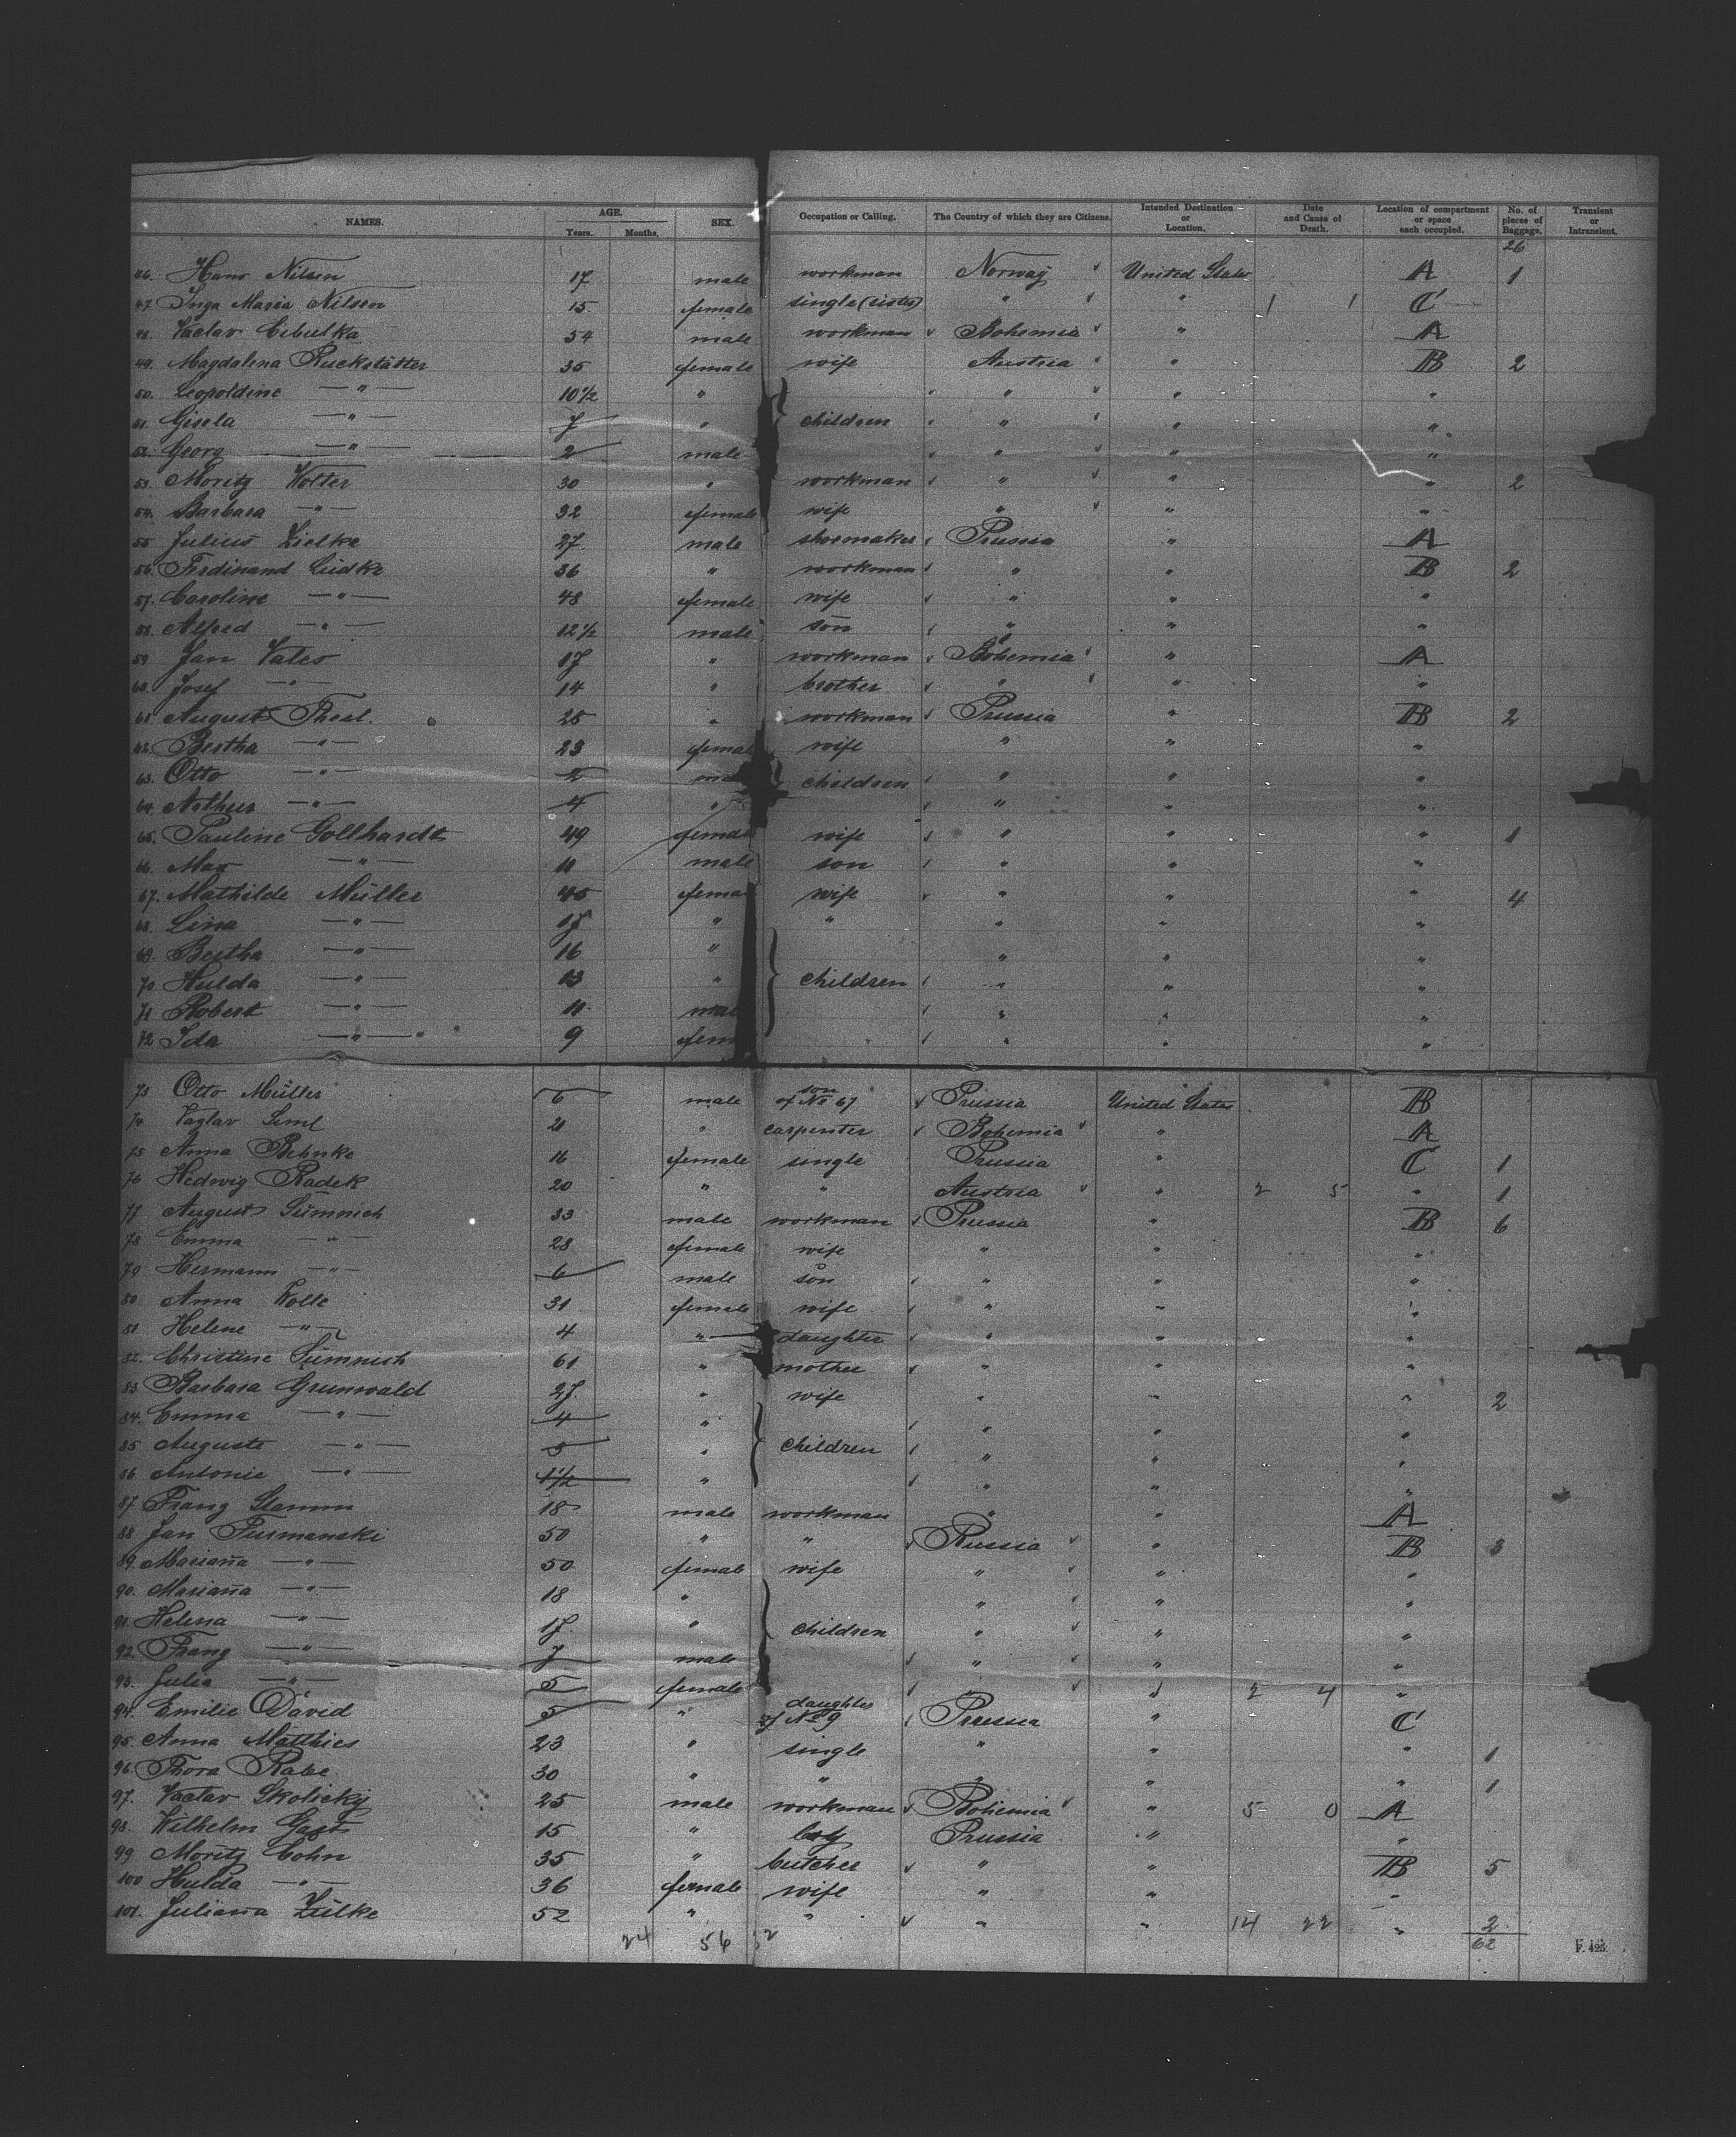 NAMES. AGE. Years. Months. SEX. Occupation or Calling. The Country of which they are Citizens. Intended Destination or Location. Date and Cause of Death. Location of compartment or space each occupied. No. of pieces of Baggage. Transient or Intransient.
26
46. Hans Nilsen 17 male workman Norway United States A 1
47. Inga Maria Nilsen 15 female single (sister) " " 1 1 C
48. Vaclav Cibulka 54 male workman Bohemia " A
49. Magdalena Ruckstätter 35 female wife Austria " B 2
50. Leopoldine —"— 10½ " " " "
51. Gisela —"— 7 " children " " "
52. Georg —"— 2 male " " "
53. Moritz Wolter 30 " workman " " " 2
54. Barbara —"— 32 female wife " " "
55 Julius Zielke 27 male shoemaker Prussia " A
56. Ferdinand Lüdke 36 " workman " " B 2
57. Caroline —"— 48 female wife " " "
58. Alfred —"— 12½ male son " " "
59 Jan Vales 17 " workman Bohemia " A
60. Josef —"— 14 " brother " " "
61 August Thesl. 25 " workman Prussia " B 2
62. Bertha —"— 23 female wife " " "
63. Otto —"— 2 ma children " " "
64. Arthur —"— 4 " " " "
65. Pauline Gollhardt 49 female wife " " " 1
66. Max —"— 11 male son " " "
67. Mathilde Müller 45 fema wife " " " 4
68. Lina —"— 17 " " " " "
69. Bertha —"— 16 " " " "
70 Hulda —"— 13 " children " " "
71 Robert —"— 11 mal " " "
72 Ida —"— 9 fem " " "
73 Otto Müller 6 male son of No 67 Prussia United States B
74 Vaglav Seml 21 " carpenter Bohemia " A
75 Anna Behnke 16 female single Prussia " C 1
76 Hedwig Radek 20 " " Austria " 2 5 " 1
77 August Sümnich 33 male workman Prussia " B 6
78 Emma —"— 28 female wife " " "
79 Hermann —"— 6 male son " " "
80 Anna Wolle 31 female wife " " "
81 Helene —"— 4 " daughter " " "
82. Christine Sümnich 61 " mother " " "
83 Barbara Grunwald 27. " wife " " " 2
84. Emma —"— 4 " " " "
85 Auguste —"— 5 " children " " "
86. Antonie —"— 1½ " " " "
87 Franz Stamm 18 male workman " " A
88 Jan Furmanski 50 " " Russia " B 3
89. Marianna —"— 50 female wife " " "
90. Marianna —"— 18 " " " "
91. Helena —"— 17. " children " " "
92. Franz —"— 7 male " " "
93. Julia —"— 5 female " " 2 4 "
94. Emilie David 5 " daughter of No 9 Prussia " C
95. Anna Matthies 23 " single " " " 1
96. Thora Rabe 30 " " " " " 1
97. Vaclav Skolicky 25 male workman Bohemia " 5 0 A
98. Wilhelm Gast 15 " boy Prussia " "
99 Moritz Cohn 35 " butcher " " B 5
100 Hulda —"— 36 female wife " " "
101. Juliana Zülke 52 " " " " 14 22 " 2
24 56 62
F. 425.